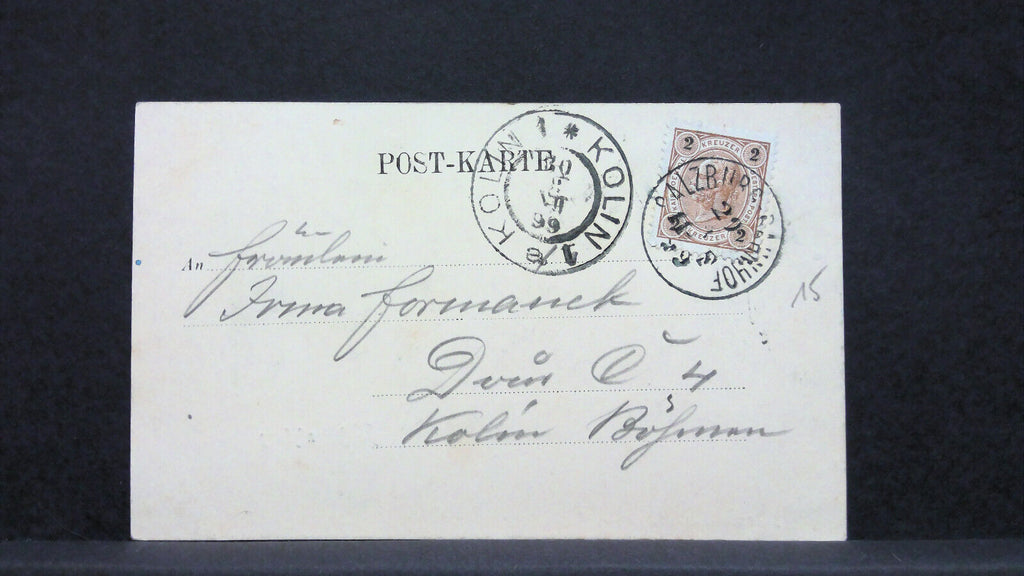 POST-KARTE
KOLÍN 1 * KOLIN 1
99
KREUZER
2 2
2
KREUZER
SALZBURG BAHNHOF
An Fräulein
Irma Formanek
Dvůr Č 4
Kolín Böhmen
15